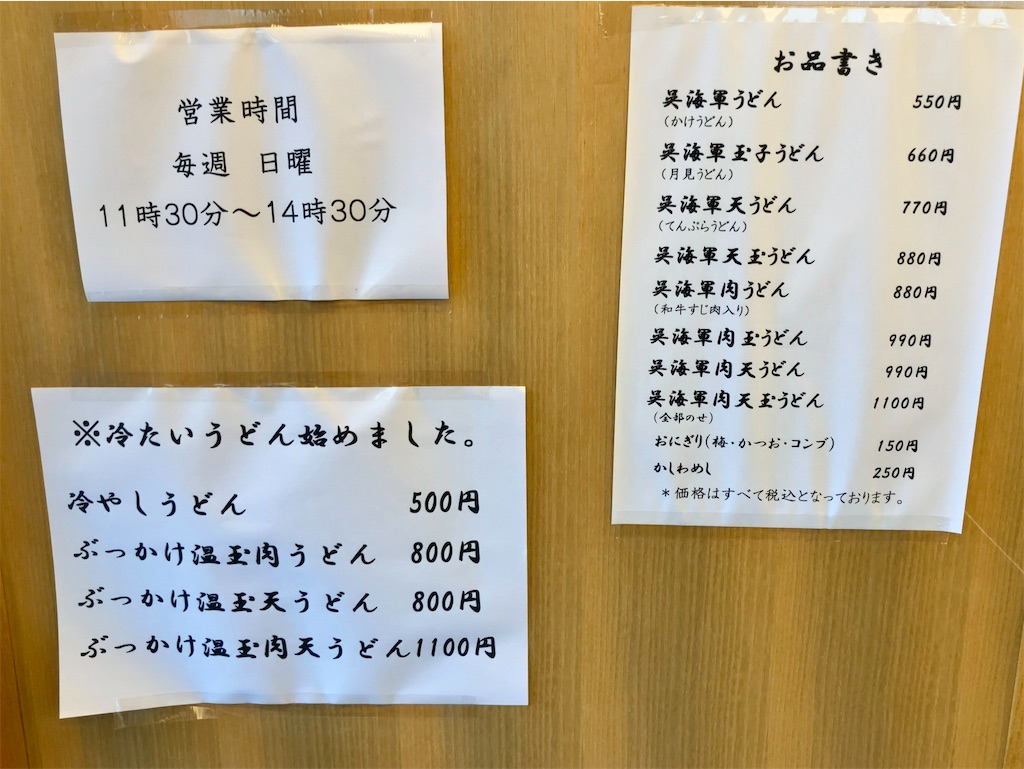 営業時間
毎週 日曜
11時30分～14時30分
※冷たいうどん始めました。
冷やしうどん 500円
ぶっかけ温玉肉うどん 800円
ぶっかけ温玉天うどん 800円
ぶっかけ温玉肉天うどん1100円
お品書き
呉海軍うどん 550円
(かけうどん)
呉海軍玉子うどん 660円
(月見うどん)
呉海軍天うどん 770円
(てんぷらうどん)
呉海軍天玉うどん 880円
呉海軍肉うどん 880円
(和牛すじ肉入り)
呉海軍肉玉うどん 990円
呉海軍肉天うどん 990円
呉海軍肉天玉うどん 1100円
(全部のせ)
おにぎり(梅・かつお・コンブ) 150円
かしわめし 250円
*価格はすべて税込となっております。